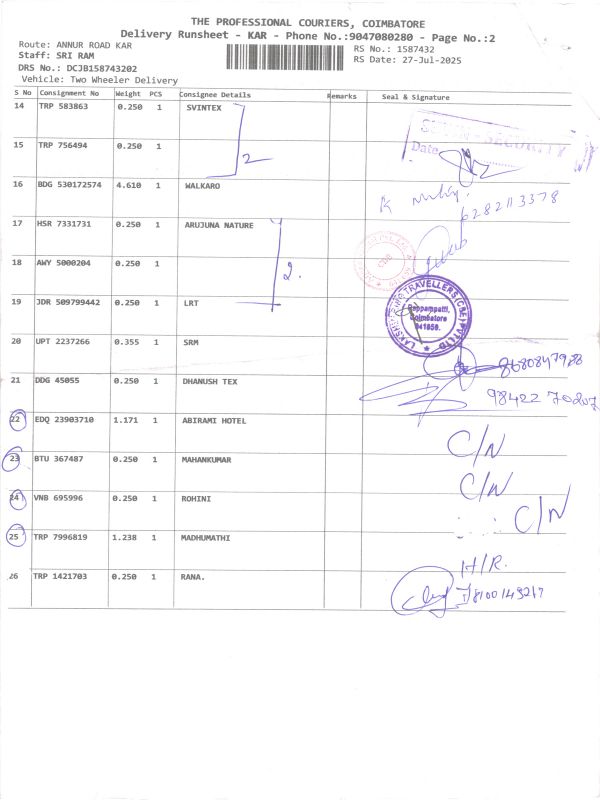 THE PROFESSIONAL COURIERS, COIMBATORE
Delivery Runsheet - KAR - Phone No.:9047080280 - Page No.:2
Route: ANNUR ROAD KAR
Staff: SRI RAM
DRS No.: DCJB158743202
Vehicle: Two Wheeler Delivery
RS No.: 1587432
RS Date: 27-Jul-2025
S No Consignment No Weight PCS Consignee Details Remarks Seal & Signature
14 TRP 583863 0.250 1 SVINTEX
15 TRP 756494 0.250 1
2
SECURITY
Date
16 BDG 530172574 4.610 1 WALKARO
6282113378
17 HSR 7331731 0.250 1 ARUJUNA NATURE
18 AWY 5000204 0.250 1
2.
19 JDR 509799442 0.250 1 LRT
TRAVELLERS (CBE) PVT LTD
Coimbatore
641659.
20 UPT 2237266 0.355 1 SRM
8680847988
21 DDG 45055 0.250 1 DHANUSH TEX
98422 70207
22 EDQ 23903710 1.171 1 ABIRAMI HOTEL
C/N
23 BTU 367487 0.250 1 MAHANKUMAR
C/N
24 VNB 695996 0.250 1 ROHINI
C/N
25 TRP 7996819 1.238 1 MADHUMATHI
H/R.
26 TRP 1421703 0.250 1 RANA.